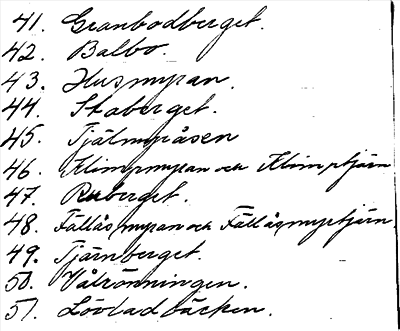 41. Granbodberget.
42. Balbo.
43. Husmyran.
44. Staberget.
45. Tjälmyråsen
46. Klimpmyran och Klimptjärn
47. Ruberget.
48. Fällåsmyran och Fällåsmyrtjärn.
49. Tjärnberget.
50. Vålrönningen.
51. Lövladbäcken.